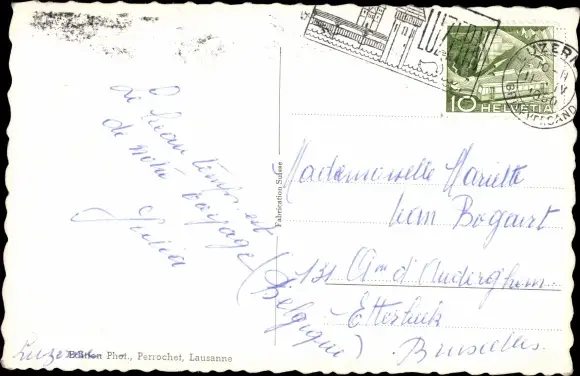 Le beau temps est
de notre voyage
Julia
Fabrication Suisse
LUZERN
LUZERN
BRIEFVERSAND
10 HELVETIA
Mademoiselle Mariette
Van Bogaert
131 Av d'Auderghem
Etterbeek
Bruxelles
(Belgique)
Edition Phot., Perrochet, Lausanne